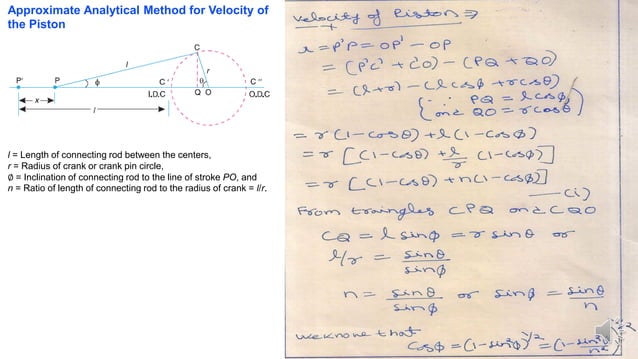 Approximate Analytical Method for Velocity of
the Piston
C
l
r
P'
P
ϕ
C '
θ
C ''
I.D.C
Q O
O.D.C
x
l
l = Length of connecting rod between the centers,
r = Radius of crank or crank pin circle,
∅ = Inclination of connecting rod to the line of stroke PO, and
n = Ratio of length of connecting rod to the radius of crank = l/r.
Velocity of Piston ⇒
x = P'P = OP' - OP
= (P'C' + C'O) - (PQ + QO)
= (l+r) - (l cosϕ + r cosθ)
{∵ PQ = l cosϕ
and QO = r cosθ}
= r (1 - cosθ) + l (1 - cosϕ)
= r [(1 - cosθ) + l/r (1 - cosϕ)]
= r [(1 - cosθ) + n(1 - cosϕ)]
—(i)
From traingles CPQ and CQO
CQ = l sinϕ = r sinθ or
l/r = sinθ/sinϕ
n = sinθ/sinϕ or sinϕ = sinθ/n
we know that
cosϕ = (1 - sin²ϕ)^1/2 = (1 - sin²θ/n²)^1/2